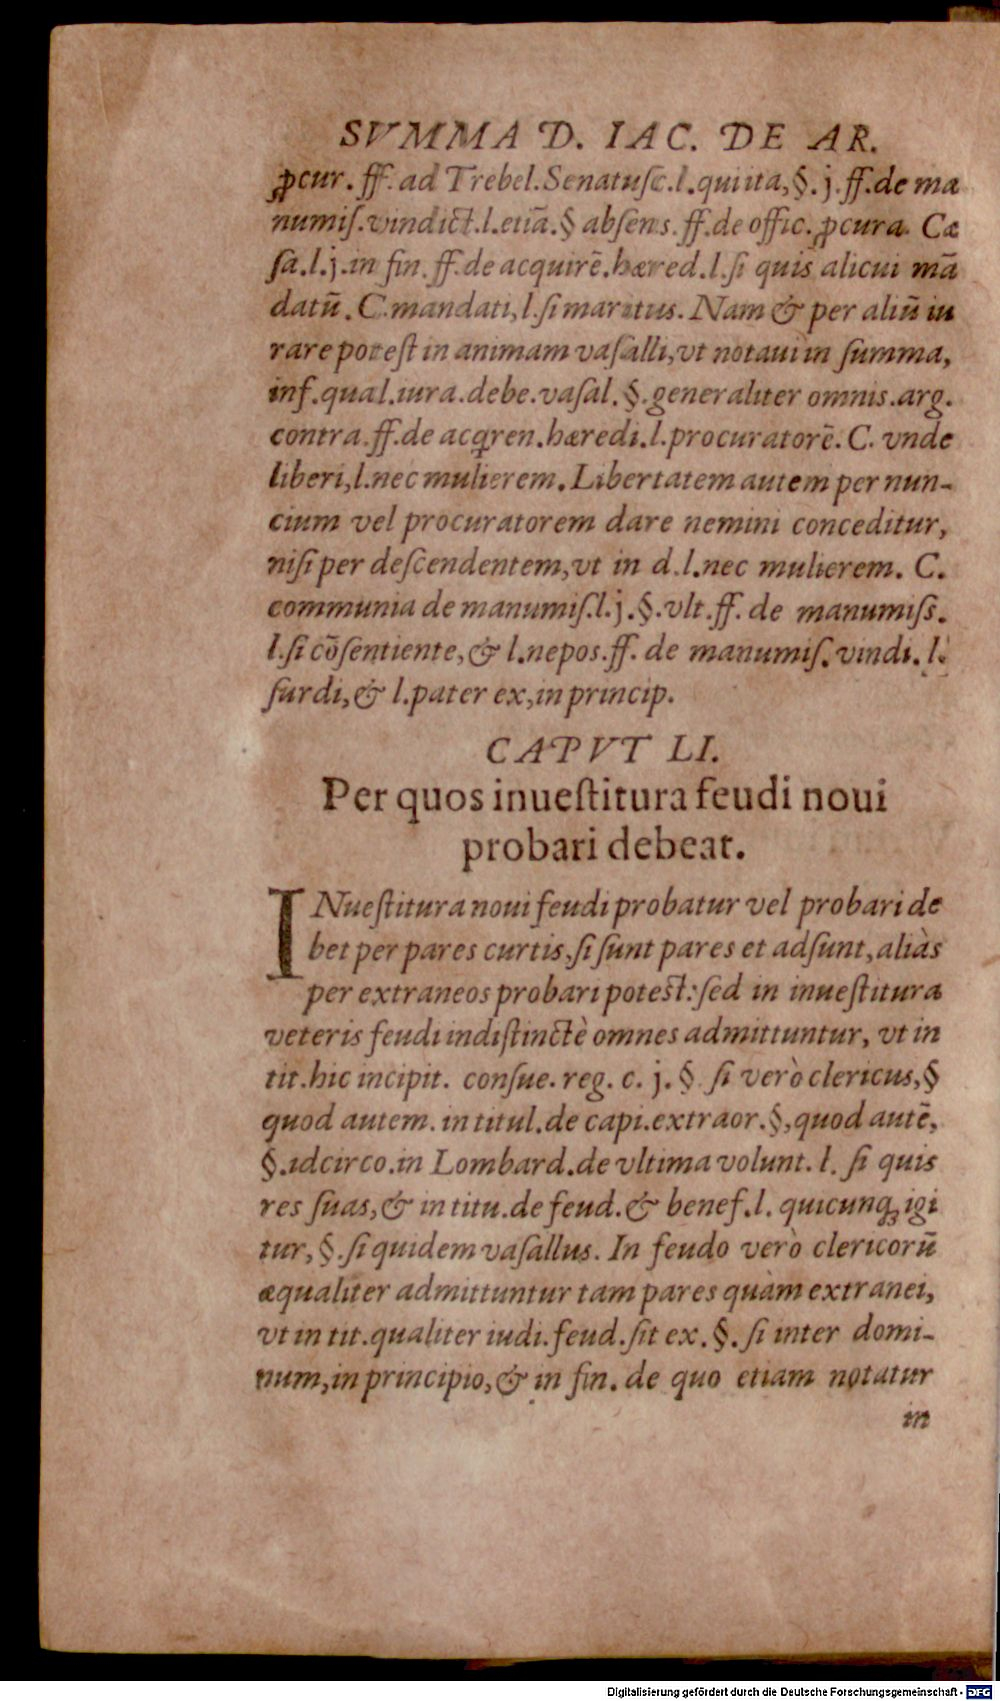 SVMMA D. IAC. DE AR.
ꝓcur. ff. ad Trebel. Senatuſc.l.quiita,§.j.ff.de ma
numiſ.vindict.l.etiã.§ abſens.ff.de offic.ꝓcura. Cæ
ſa.l.j.in fin.ff.de acquirẽ.hæred.l.ſi quis alicui mã
datũ. C.mandati,l.ſi maritus. Nam & per aliũ iu
rare poteſt in animam vaſalli,vt notaui in ſumma,
inf.qual.iura.debe.vaſal.§.generaliter omnis.arg.
contra.ff.de acqren.hæredi.l.procuratorẽ.C. vnde
liberi,l.nec mulierem. Libertatem autem per nun-
cium vel procuratorem dare nemini conceditur,
niſi per deſcendentem,vt in d.l.nec mulierem. C.
communia de manumiſ.l.j.§.vlt.ff. de manumiſs.
l.ſi cõſentiente,& l.nepos.ff. de manumiſ.vindi. l.
ſurdi,& l.pater ex,in princip.
CAPVT LI.
Per quos inueſtitura feudi noui
probari debeat.
INueſtitura noui feudi probatur vel probari de
bet per pares curtis,ſi ſunt pares et adſunt,aliàs
per extraneos probari poteſt:ſed in inueſtitura
veteris feudi indiſtinctè omnes admittuntur, vt in
tit.hic incipit. conſue. reg. c. j. §. ſi verò clericus,§
quod autem. in titul.de capi.extraor.§,quod autẽ,
§.idcirco.in Lombard.de vltima volunt. l. ſi quis
res ſuas,& in titu.de feud.& benef.l. quicunqꝫ igi
tur,§.ſi quidem vaſallus. In feudo verò clericorũ
æqualiter admittuntur tam pares quàm extranei,
vt in tit.qualiter iudi.feud.ſit ex.§. ſi inter domi-
num,in principio,& in fin. de quo etiam notatur
in
Digitalisierung gefördert durch die Deutsche Forschungsgemeinschaft - DFG